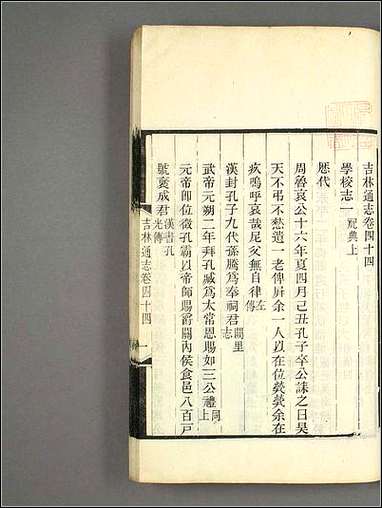 吉林通志卷四十四
學校志一 祀典上
歷代
周魯哀公十六年夏四月己丑孔子卒公誄之曰旻
天不弔不慭遺一老俾屏余一人以在位煢煢余在
疚嗚呼哀哉尼父無自律左傳
漢封孔子九代孫騰爲奉祠君闕里志
武帝元朔二年拜孔臧爲太常恩賜如三公禮同上
元帝即位徵孔霸以帝師賜爵關內侯食邑八百戸
號褒成君漢書孔光傳
吉林通志卷四十四 一